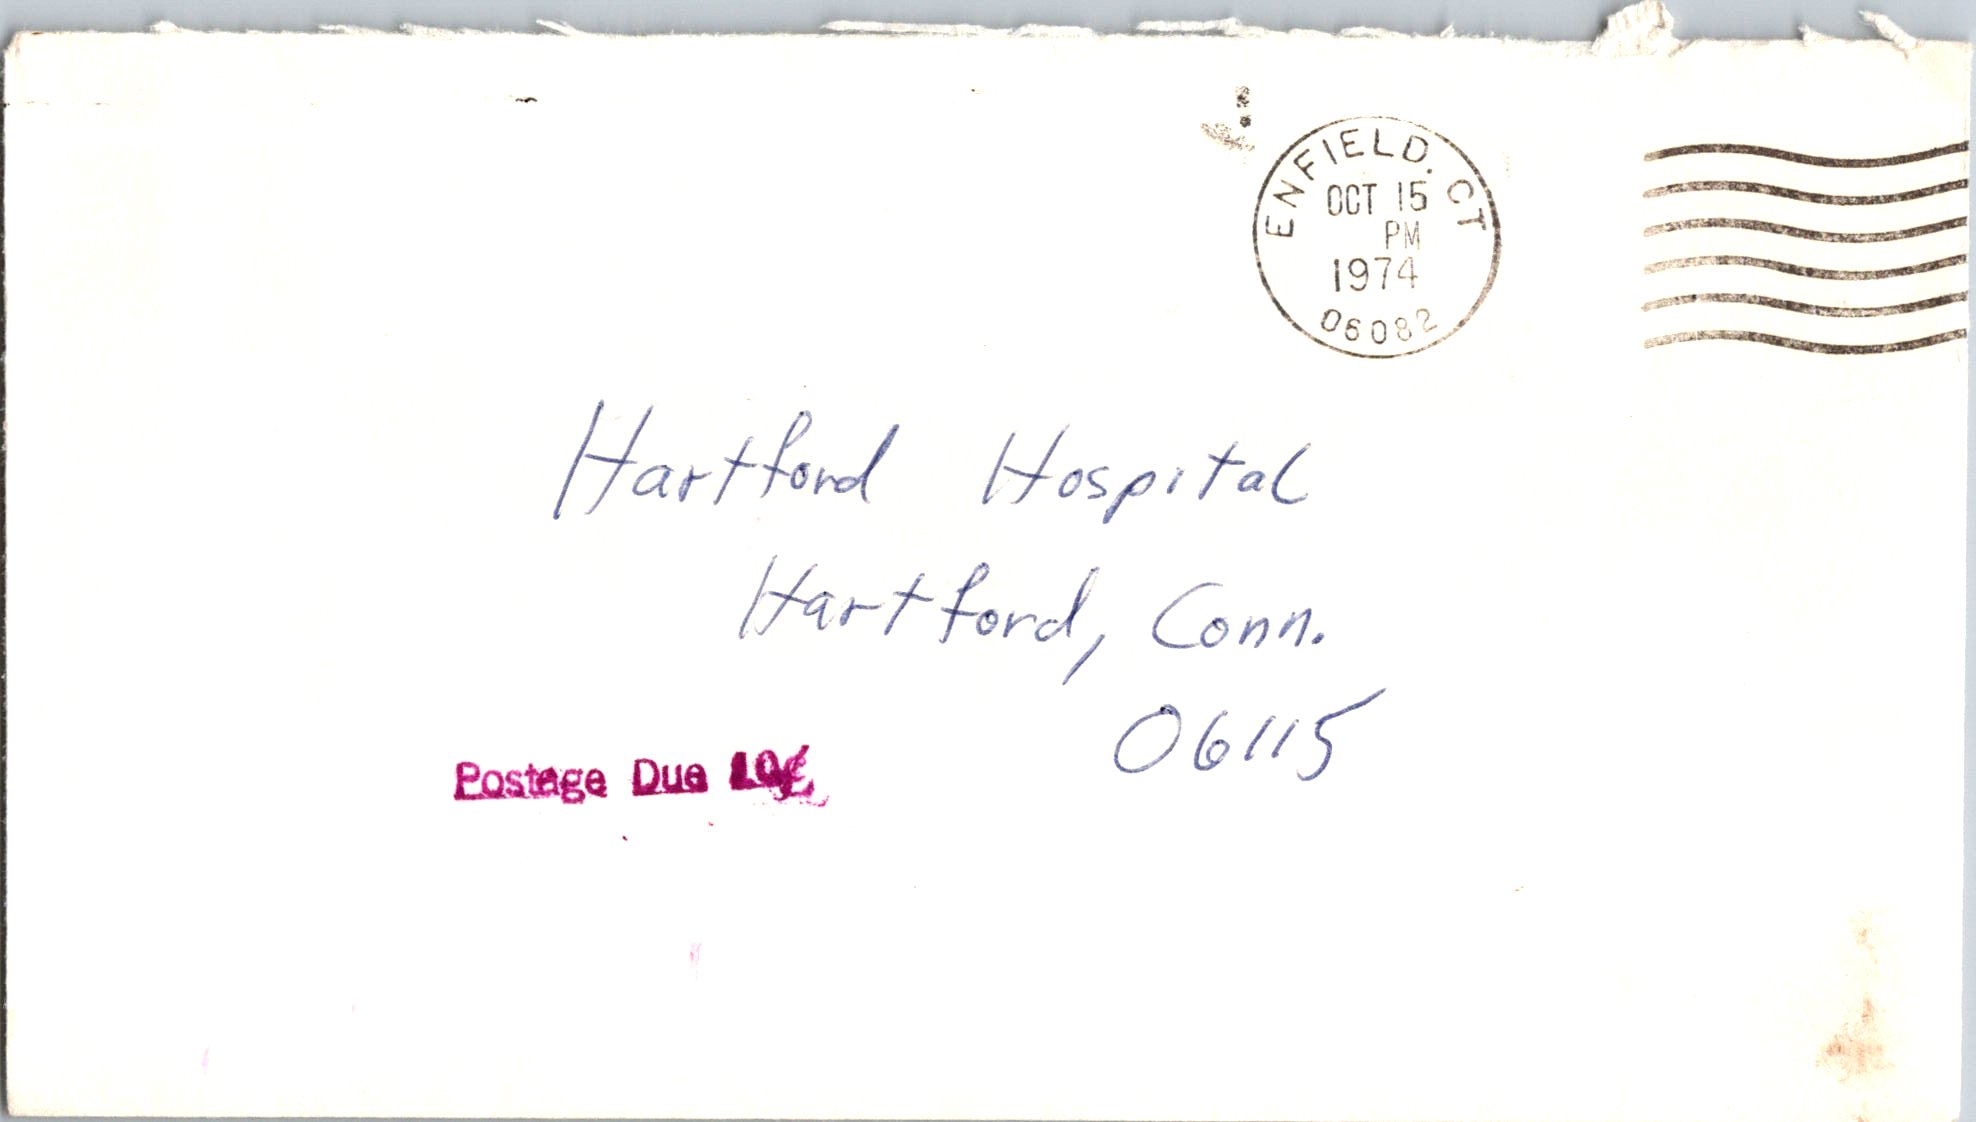 ENFIELD, CT
OCT 15
PM
1974
06082
Hartford Hospital
Hartford, Conn.
06115
Postage Due 10¢